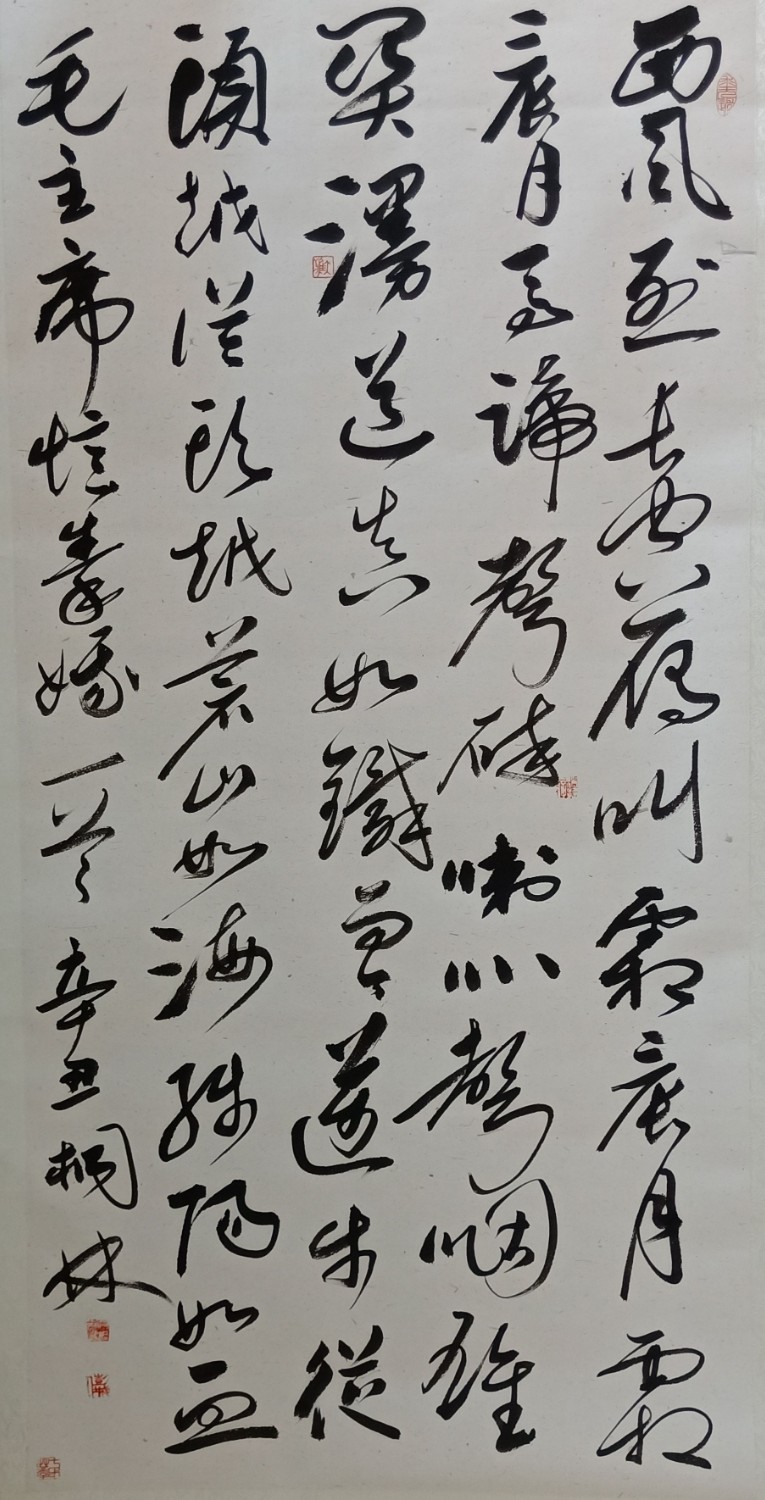 西風烈長空雁叫霜晨月霜
晨月馬蹄聲碎喇叭聲咽雄
關漫道真如鐵而今邁步從
頭越從頭越蒼山如海殘陽如血
毛主席憶秦娥一首 辛丑桐林